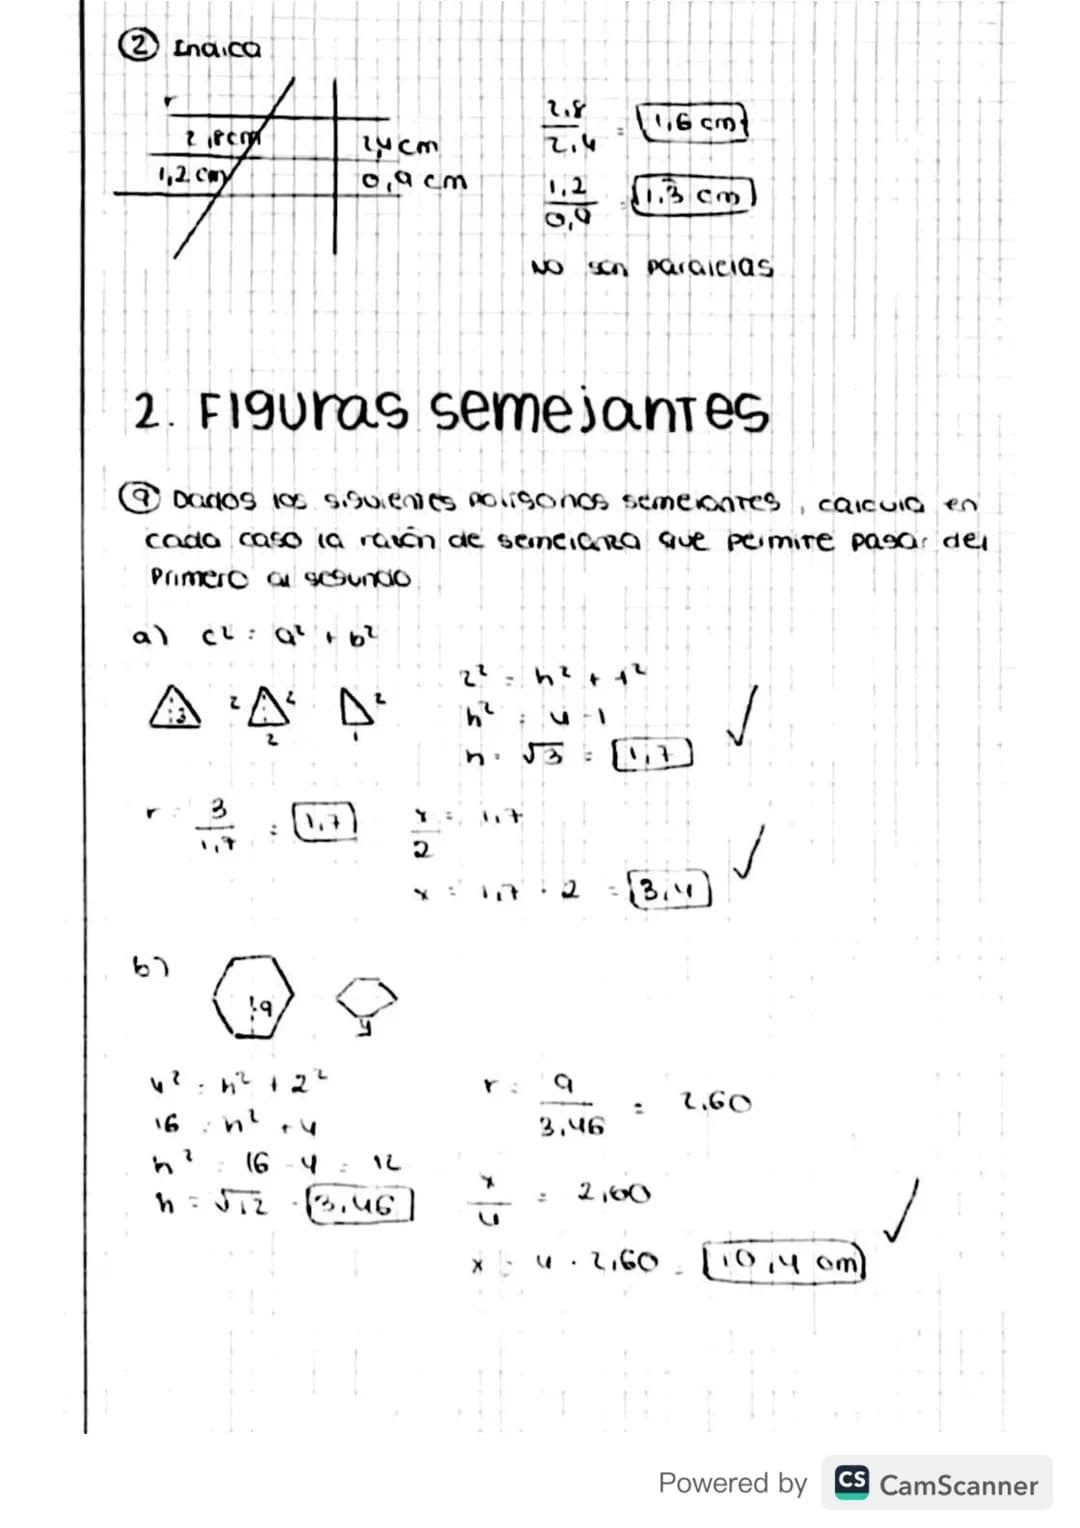 2 Indica
r
2,8cm 2,4cm
1,2 cm 0,9 cm
2,8/2,4 = 1,6 cm
1,2/0,9 = 1,3 cm
NO son paralelas
2. Figuras semejantes
9 Dados los siguientes polígonos semejantes, calcula en
cada caso la razón de semejanza que permite pasar del
Primero al segundo
a) c² = a² + b²
3 2 2 2 2 1
2² = h² + 1²
h² = 4 - 1
h = √3 = 1,7
r = 3/1,7 = 1,7
x/2 = 1,7
x = 1,7 · 2 = 3,4
b)
9 4
4² = h² + 2²
16 = h² + 4
h² = 16 - 4 = 12
h = √12 = 3,46
r = 9/3,46 = 2,60
x/4 = 2,60
x = 4 · 2,60 = 10,4 cm
Powered by CS CamScanner